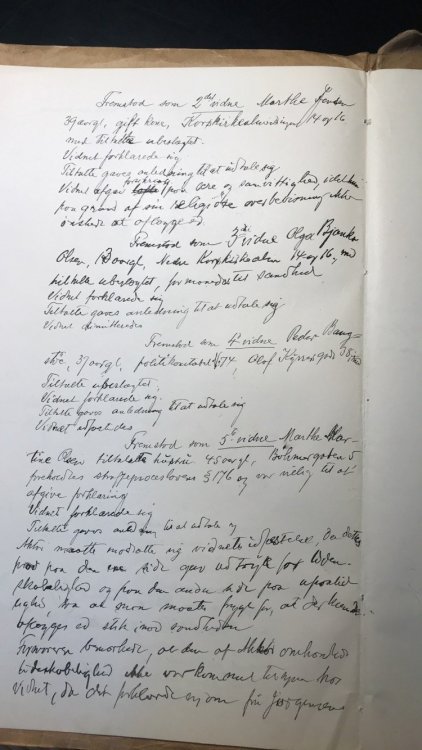 Fremstod som 2det vidne Marthe Jensen
39 aargl, gift kone, Korpkirkealmenningen 14 og 16
med tiltalte ubeslægtet.
Vidnet forklarede sig
Tiltalte gaves anledning til at udtale sig
Vidnet afgav forsikring paa ære og samvittighed, idet hun
paa grund af sin religiøse overbevisning ikke
ønskede at aflægge ed.
Fremstod som 3die vidne Olga
Olsen, aargl, Nedre Korpkirkealm 14 og 16, med
tiltalte ubeslægtet, formanedes til sandhed
Vidnet forklarede sig
Tiltalte gaves anledning til at udtale sig
Vidnet dimitteredes
Fremstod som 4de vidne Peder
37 aargl, politikonstabel 74, Olaf Kyrres gade 38
Tiltalte ubeslægtet,
Vidnet forklarede sig.
Tiltalte gaves anledning til at udtale sig
Vidnet
Fremstod som 5te vidne Marthe Mar-
tine Olsen tiltaltes hustru 45 aargl,
foreholdtes straffeproceslovens § 176 og var villig til at
afgive forklaring
Vidnet forklarede sig
Tiltalte gaves anledning til at udtale sig
Aktor maatte modsætte sig vidnets da dette
paa den ene side gav udtryk for liden-
skabelighed og paa den anden side paa upaalid-
elighed, saa at man maatte frygte for, at
aflægges ed stik imod sandheden
Forsvareren bemærkede, at den af Aktor omhandlede
lidenskabelighed ikke var kommet tilsyne hos
vidnet, da det forklarede sig om fru Jørgensen